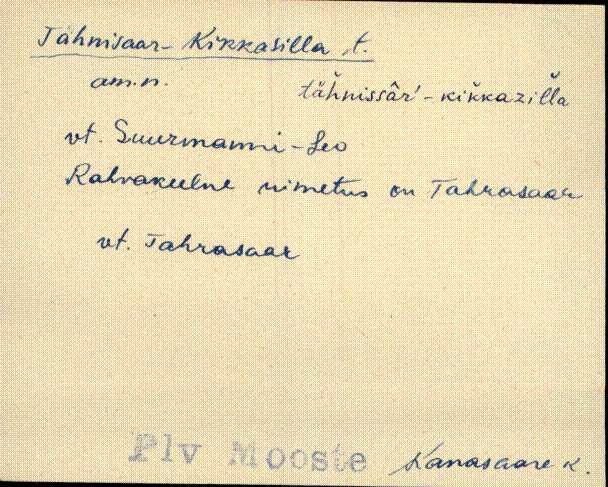 Tähnisaar-Kikkasilla t.
am.n. täh̆nissâr' - kik̆kazil̆la
vt. Suurmanni-Leo
Rahvakeelne nimetus on Tahrasaar
vt. Tahrasaar
Plv Mooste Kanasaare k.